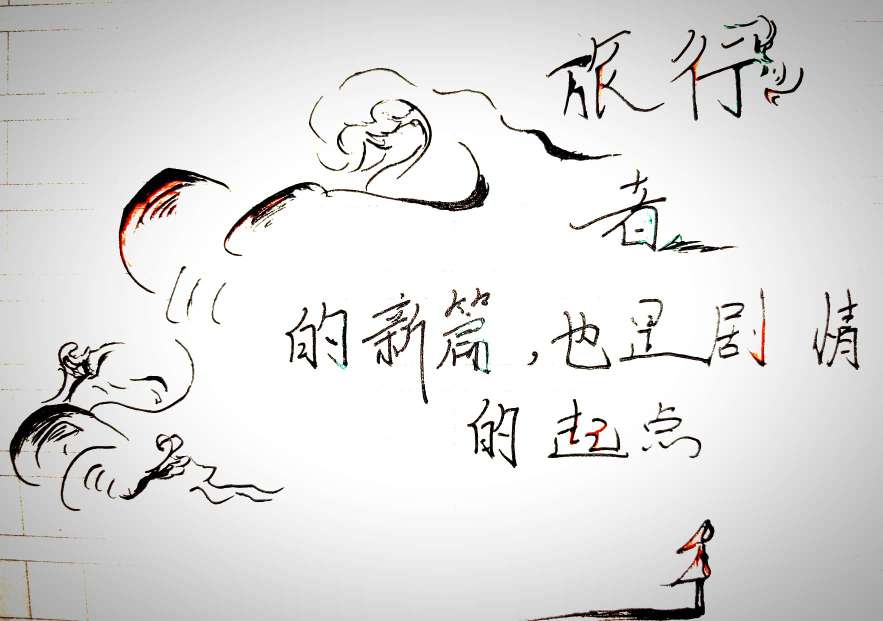 旅行
者
的新篇,也是剧情
的起点